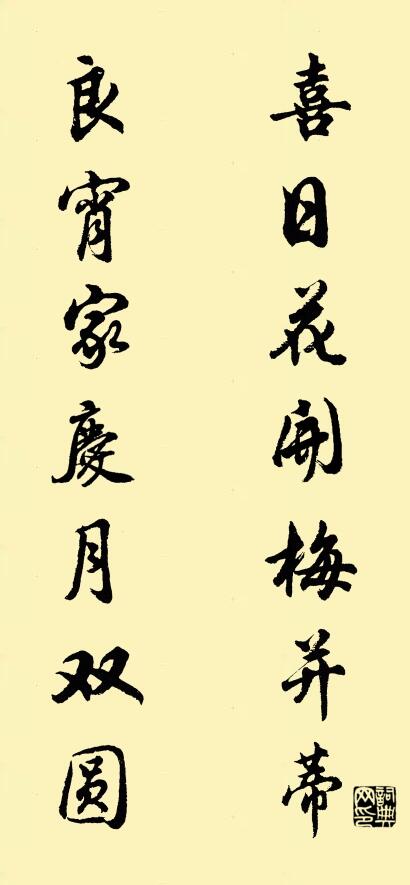 喜日花開梅并蒂
良宵家慶月双圓
詞典网印